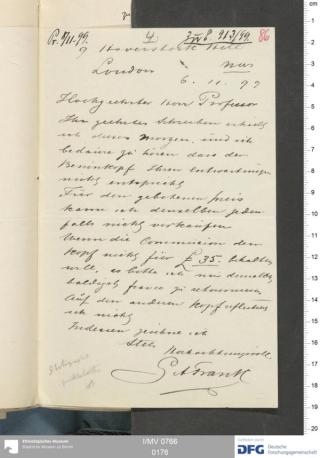 Pr. 8/11.99. 4 zu E. 913/99. 86
9 Haverstock Hill
London NW
6. 11. 99
Hochgeehrter Herr Professor
Ihr geehrtes Schreiben erhielt
ich diesen Morgen, und ich
bedaure zu hören dass der
Beninkopf Ihren Erwartungen
nicht entspricht
Für den gebotenen Preis
kann ich denselben jeden-
falls nicht verkaufen
Wenn die Commission den
Kopf nicht für £ 35. behalten
will, so bitte ich mir denselben
baldigst franco zu retourniren
Auf den anderen Kopf
ich nicht
Indessen zeichne ich
Stets
Hochachtungsvoll
S A Frank
Ethnologisches Museum
Staatliche Museen zu Berlin
I/MV 0766
0176
Gefördert durch
DFG Deutsche
Forschungsgemeinschaft
cm
2
3
4
5
6
7
8
9
10
11
12
13
14
15
16
17
18
19
20